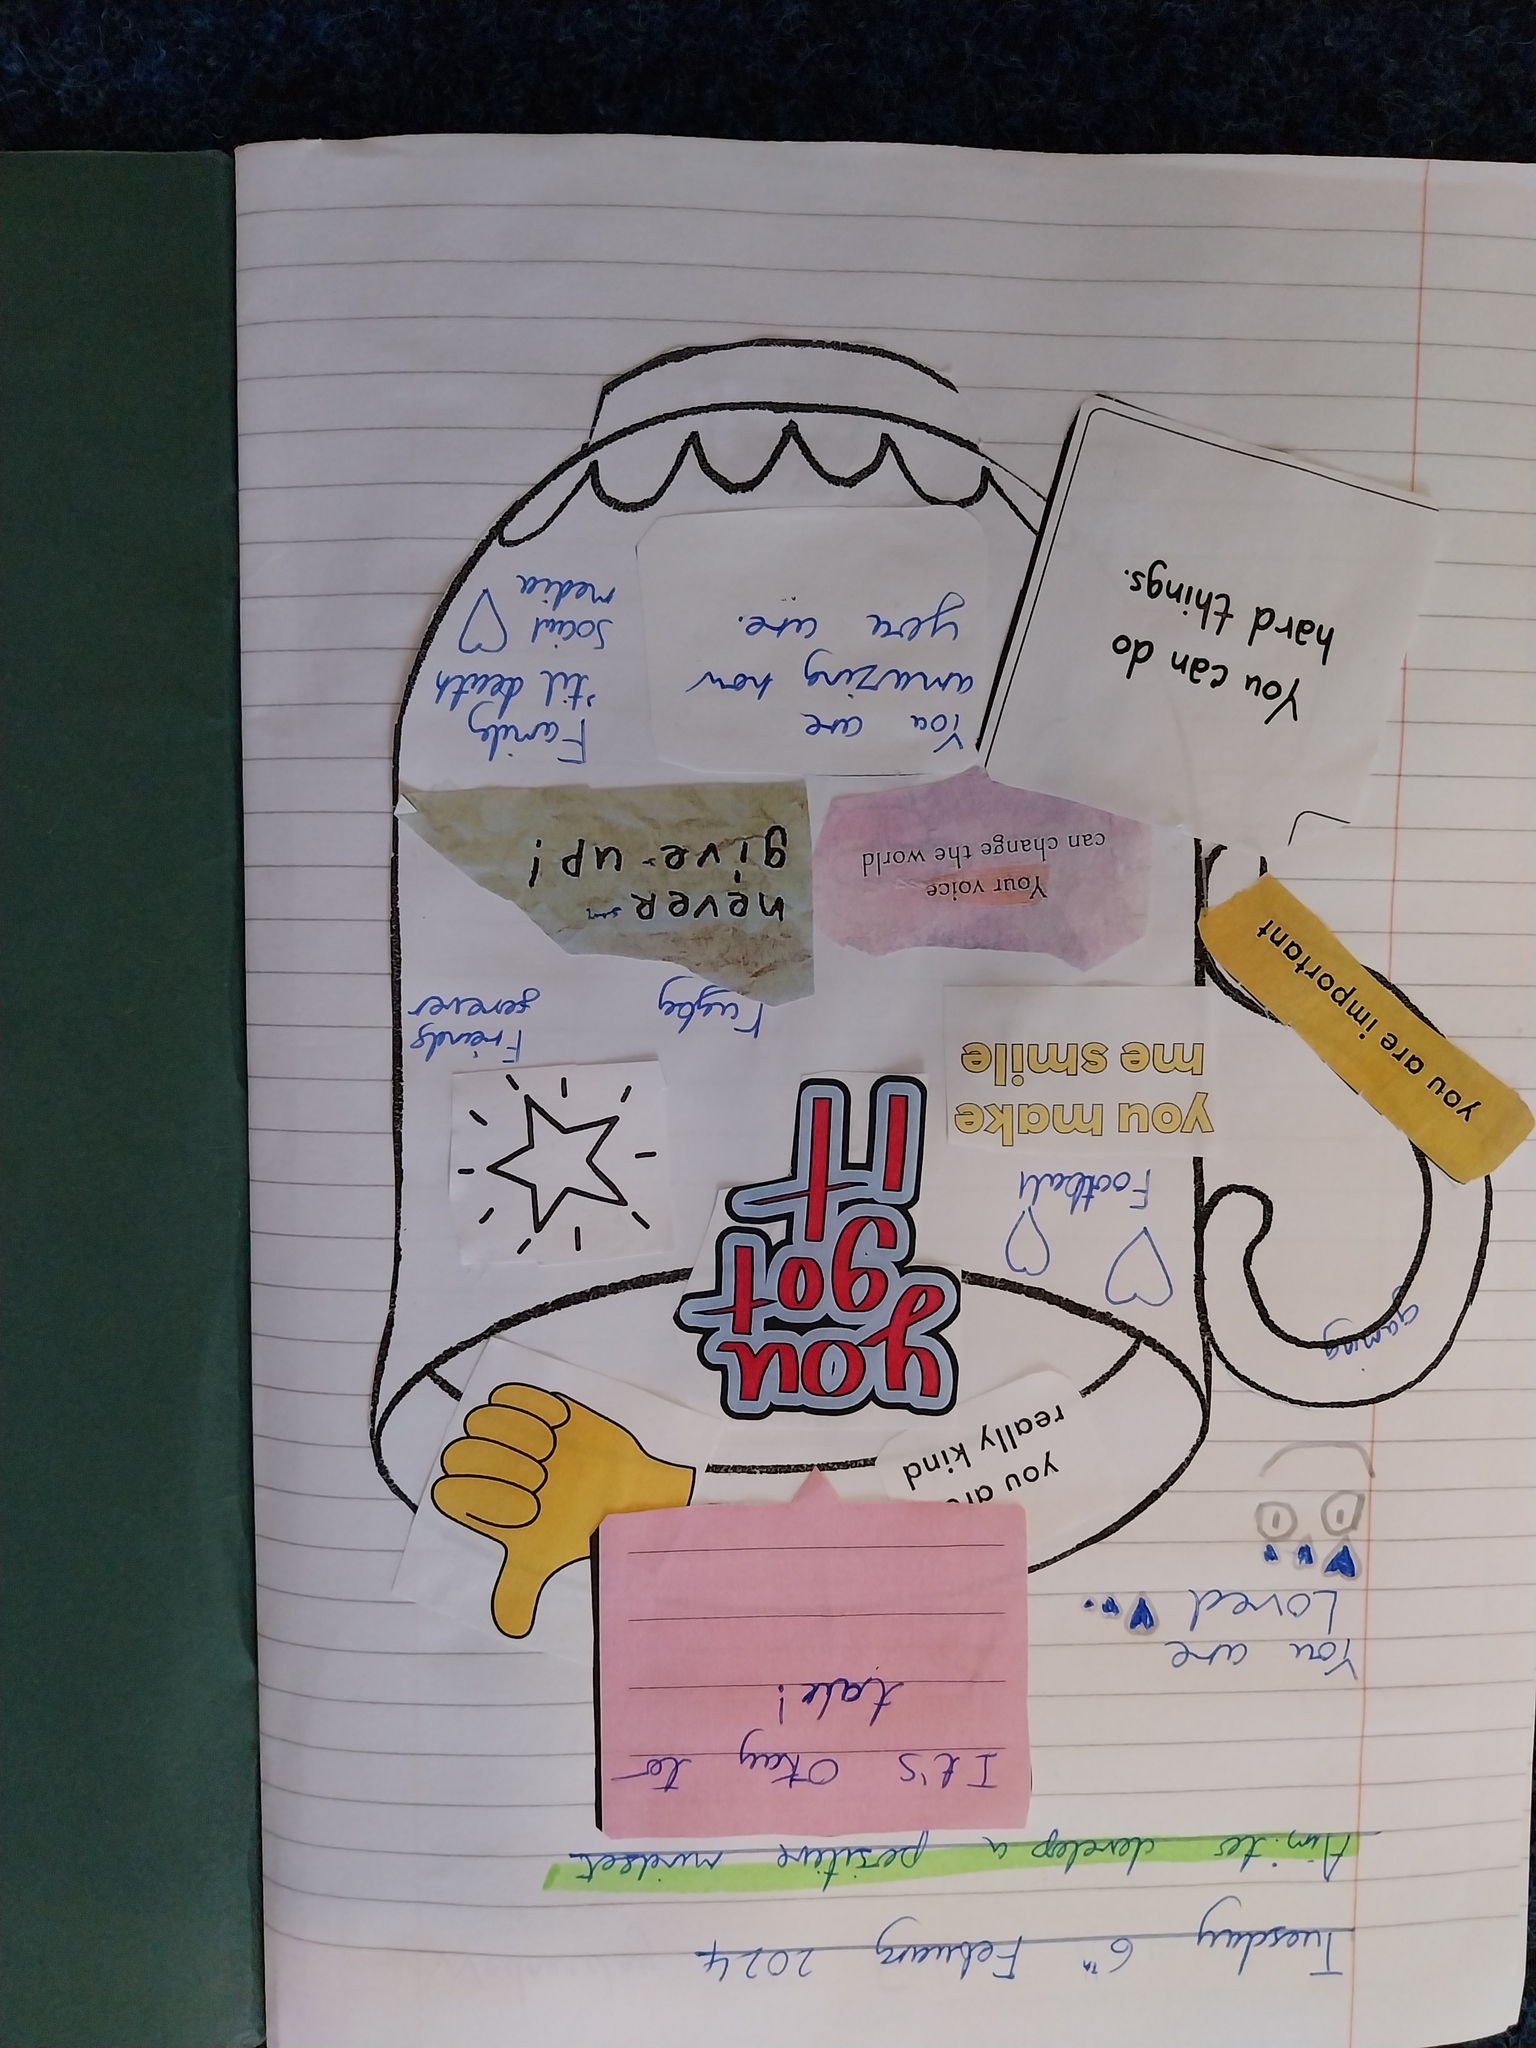 Tuesday 6th February 2024
Aim: to develop a positive mindset
It's Okay to
talk!
You are
Loved
you are
really kind
you
got
it
gaming
Football
you make
me smile
you are important
Friends
forever
Rugby
never
give up!
Your voice
can change the world
Family
'til death
Social
media
You are
amazing how
you are.
You can do
hard things.